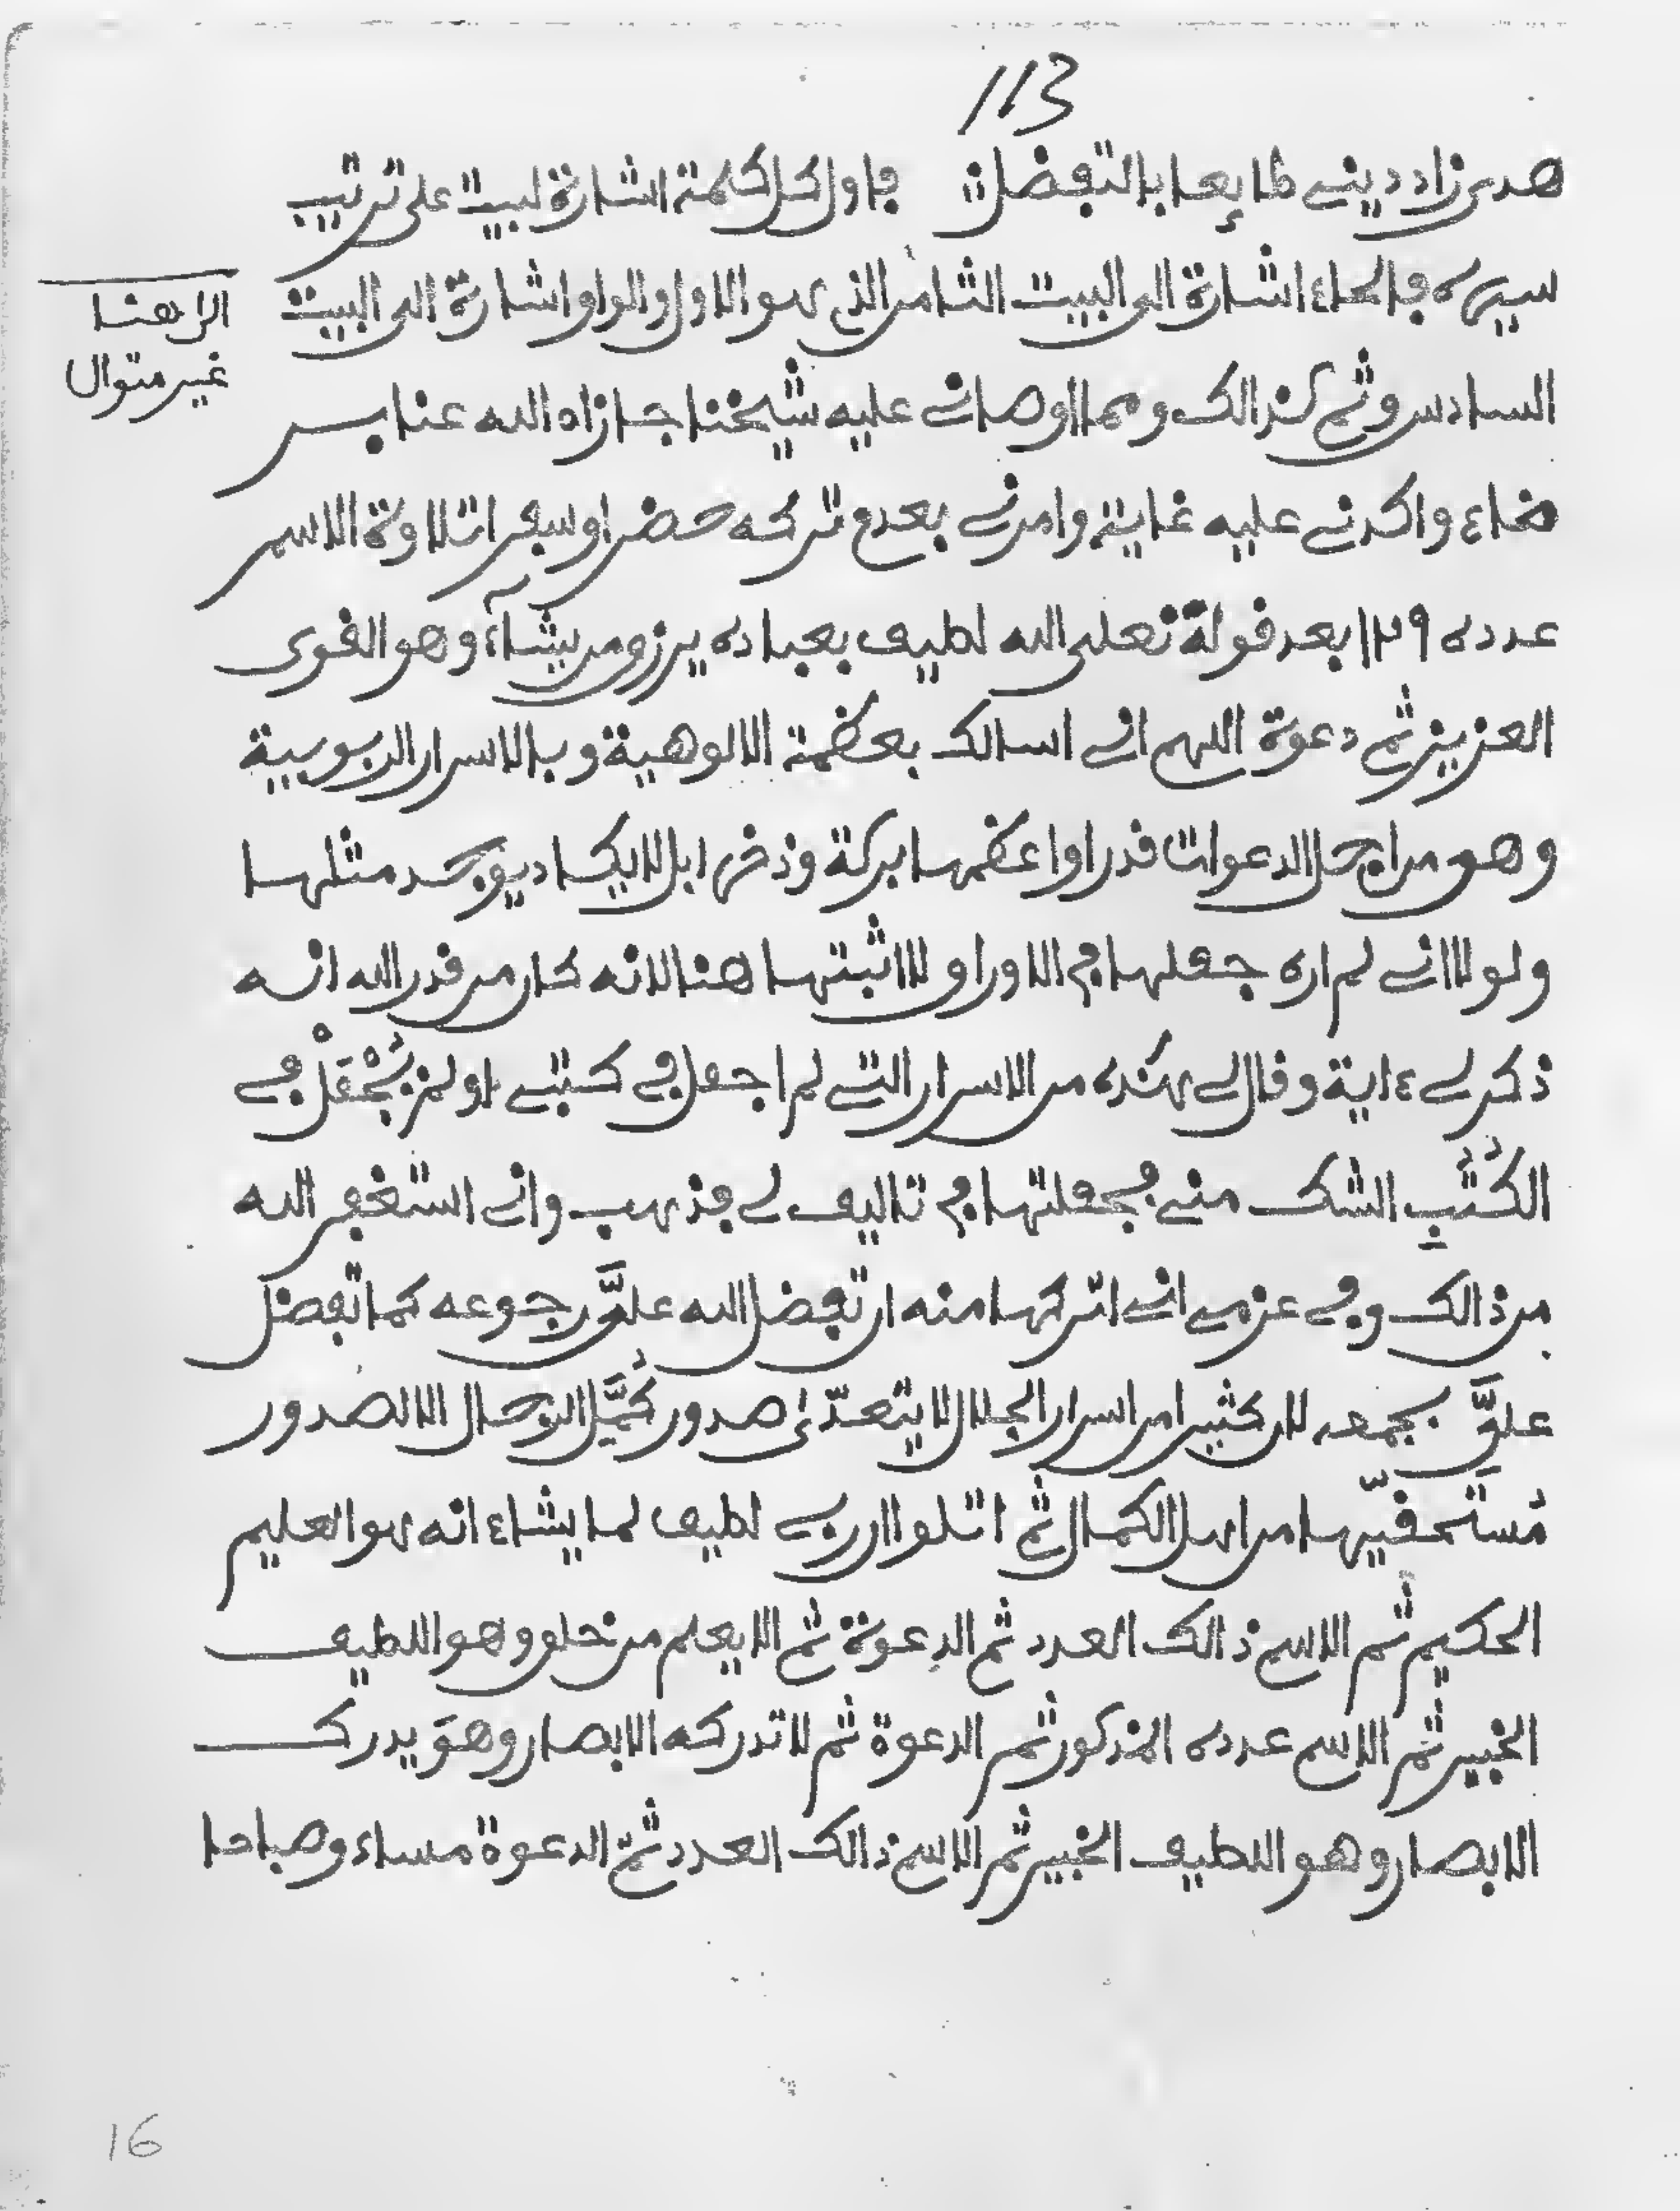 113
هدى زاد ديني طايعا بالتفضل فاول كل كلمة اشارة لبيت على ترتيب
سيره فالحاء اشارة الى البيت الثامن الذي هو الاول والواو اشارة الى البيت
الى هنا
غير متوال
السادس وثم كذالك ومما اوصاني عليه شيخنا جازاه الله عنا بر
ضاء واكدني عليه غاية وامرني بعدم تركه حضرا وسفرا تلاوة الاسم
عدده ١٢٩ بعد قولة تعلى الله لطيف بعباده يرزق من يشاء وهو القوى
العزيز ثم دعوة اللهم اني اسالك بعظمة الالوهية وبالاسرار الربوبية
وهو من اجل الدعوات قدرا واعظمها بركة وذخرا بل لا يكاد يوجد مثلها
ولولا اني لم اره جعلها في الاوراق لا اثبتها هنا لانه كان من قدر الله انه
ذكر لي ءاية وقال لي هذه من الاسرار التي لم اجعل في كتبي او لم يُجْعَلْ في
الكُتُبِ الشك مني فجعلتها في تاليف لي فذهب واني استغفر الله
من ذالك وفي عزمي اني اتركها منه ان تفضل الله عليَّ رجوعه كما تفضل
عليَّ بجمعه لان كثيرا من اسرار الجلال لا يتعدّى صدور كُمَّل الرجال الا لصدور
مُستحقّيها من اهل الكمال ثم اتلوا ان ربي لطيف لما يشاء انه هو العليم
الحكيم ثم الاسم ذالك العدد ثم الدعوة ثم الا يعلم من خلق وهو اللطيف
الخبير ثم الاسم عدده المذكور ثم الدعوة ثم لا تدركه الابصار وهوَ يدرك
الابصار وهو اللطيف الخبير ثم الاسم ذالك العدد ثمّ الدعوة مساء وصباحا
16